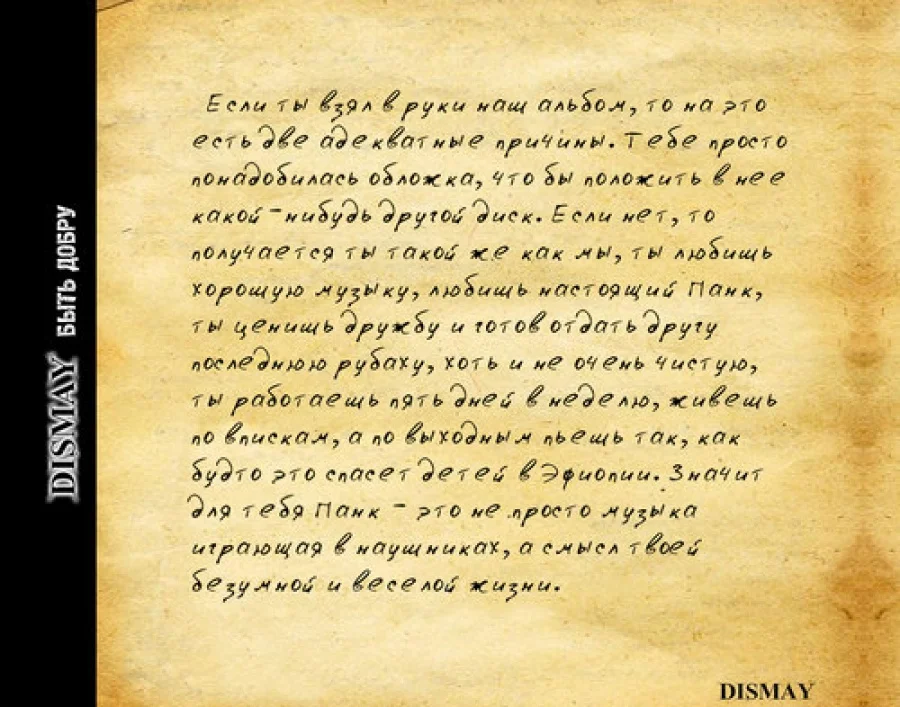 Если ты взял в руки наш альбом, то на это
есть две адекватные причины. Тебе просто
понадобилась обложка, что бы положить в нее
какой-нибудь другой диск. Если нет, то
получается ты такой же как мы, ты любишь
хорошую музыку, любишь настоящий Панк,
ты ценишь дружбу и готов отдать другу
последнюю рубаху, хоть и не очень чистую,
ты работаешь пять дней в неделю, живешь
по впискам, а по выходным пьешь так, как
будто это спасет детей в Эфиопии. Значит
для тебя Панк - это не просто музыка
играющая в наушниках, а смысл твоей
безумной и веселой жизни.
DISMAY
DISMAY БЫТЬ ДОБРУ